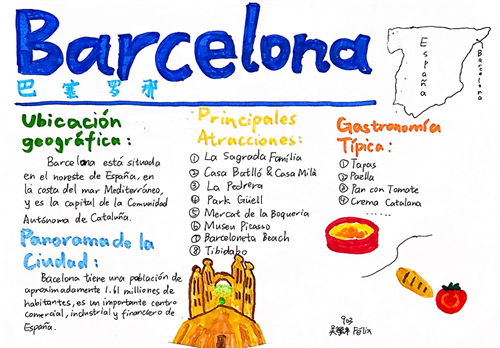 Barcelona
巴塞罗那
España
Barcelona
Ubicación
geográfica:
Barcelona está situada
en el noreste de España, en
la costa del mar Mediterráneo,
y es la capital de la Comunidad
Autónoma de Cataluña.
Panorama de la
Ciudad:
Bacelona tiene una población de
aproximadamente 1.61 millones de
habitantes, es un importante centro
comercial, industrial y financiero de
España.
Principales
Atracciones:
① La Sagrada Família
② Casa Batlló & Casa Milà
③ La Pedrera
④ Park Güell
⑤ Mercat de la Boqueria
⑥ Museu Picasso
⑦ Barceloneta Beach
⑧ Tibidabo
Gastronomía
Típica:
① Tapas
② Paella
③ Pan con Tomate
④ Crema Catalana
......
Félix